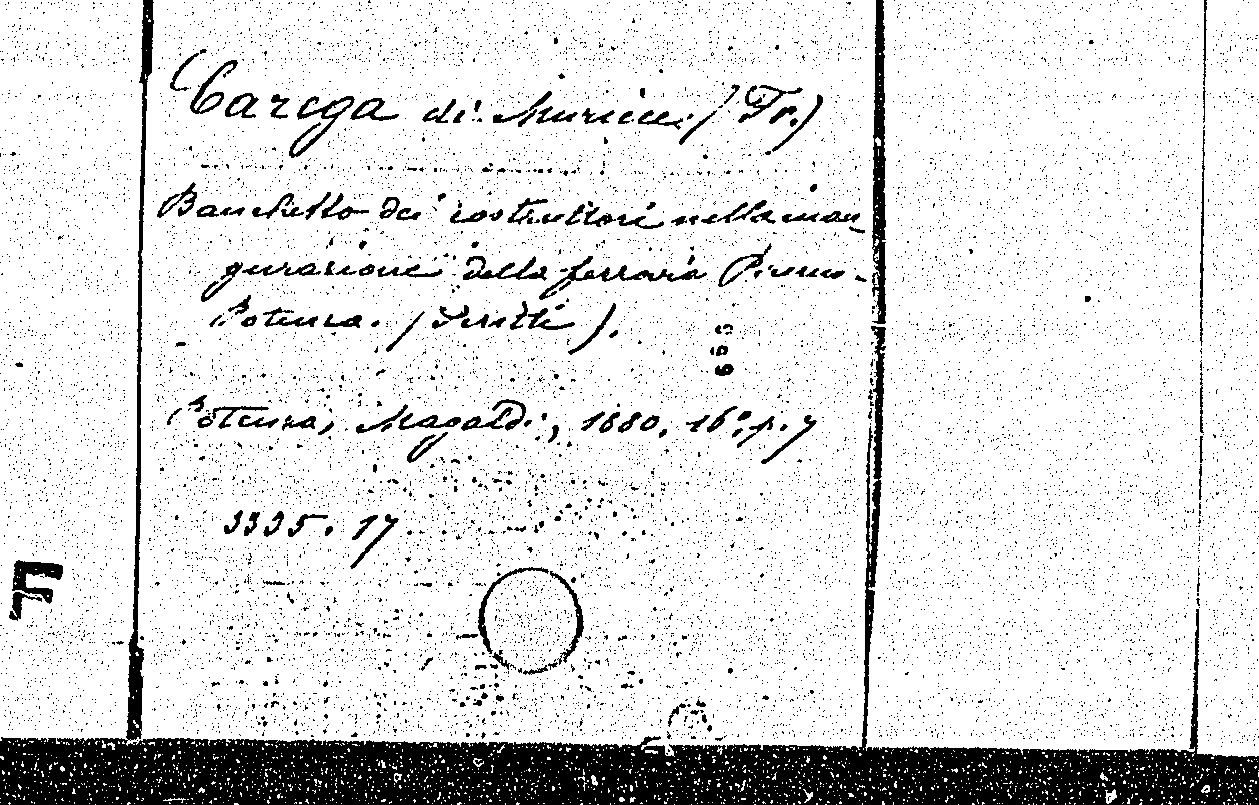 Carega di Muricce (Fr.)
Banchetto dei costruttori nella inau-
gurazione della ferrovia Picerno-
Potenza. (Scritti).
653
Potenza, Magaldi, 1880, 16°, p. 7
3335. 17
F